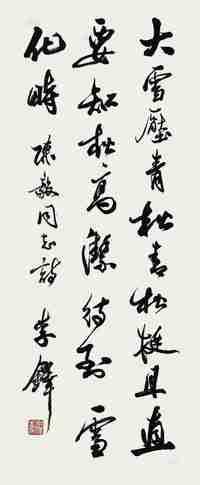 大雪压青松青松挺且直
要知松高洁待到雪
化时 陈毅同志诗 李铎